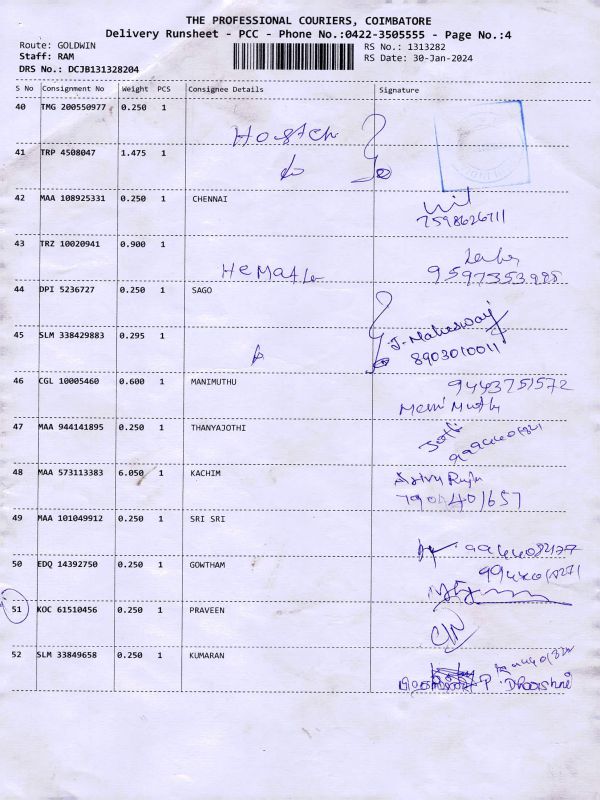 THE PROFESSIONAL COURIERS, COIMBATORE
Delivery Runsheet - PCC - Phone No.:0422-3505555 - Page No.:4
Route: GOLDWIN RS No.: 1313282
Staff: RAM RS Date: 30-Jan-2024
DRS No.: DCJB131328204
S No Consignment No Weight PCS Consignee Details Signature
40 TMG 200550977 0.250 1
41 TRP 4508047 1.475 1
42 MAA 108925331 0.250 1 CHENNAI
7598626711
43 TRZ 10020941 0.900 1
44 DPI 5236727 0.250 1 SAGO
45 SLM 338429883 0.295 1
J. Maheswari
8903010011
46 CGL 10005460 0.600 1 MANIMUTHU
9443751572
Mani Muthu
47 MAA 944141895 0.250 1 THANYAJOTHI
48 MAA 573113383 6.050 1 KACHIM
49 MAA 101049912 0.250 1 SRI SRI
50 EDQ 14392750 0.250 1 GOWTHAM
51 KOC 61510456 0.250 1 PRAVEEN
52 SLM 33849658 0.250 1 KUMARAN